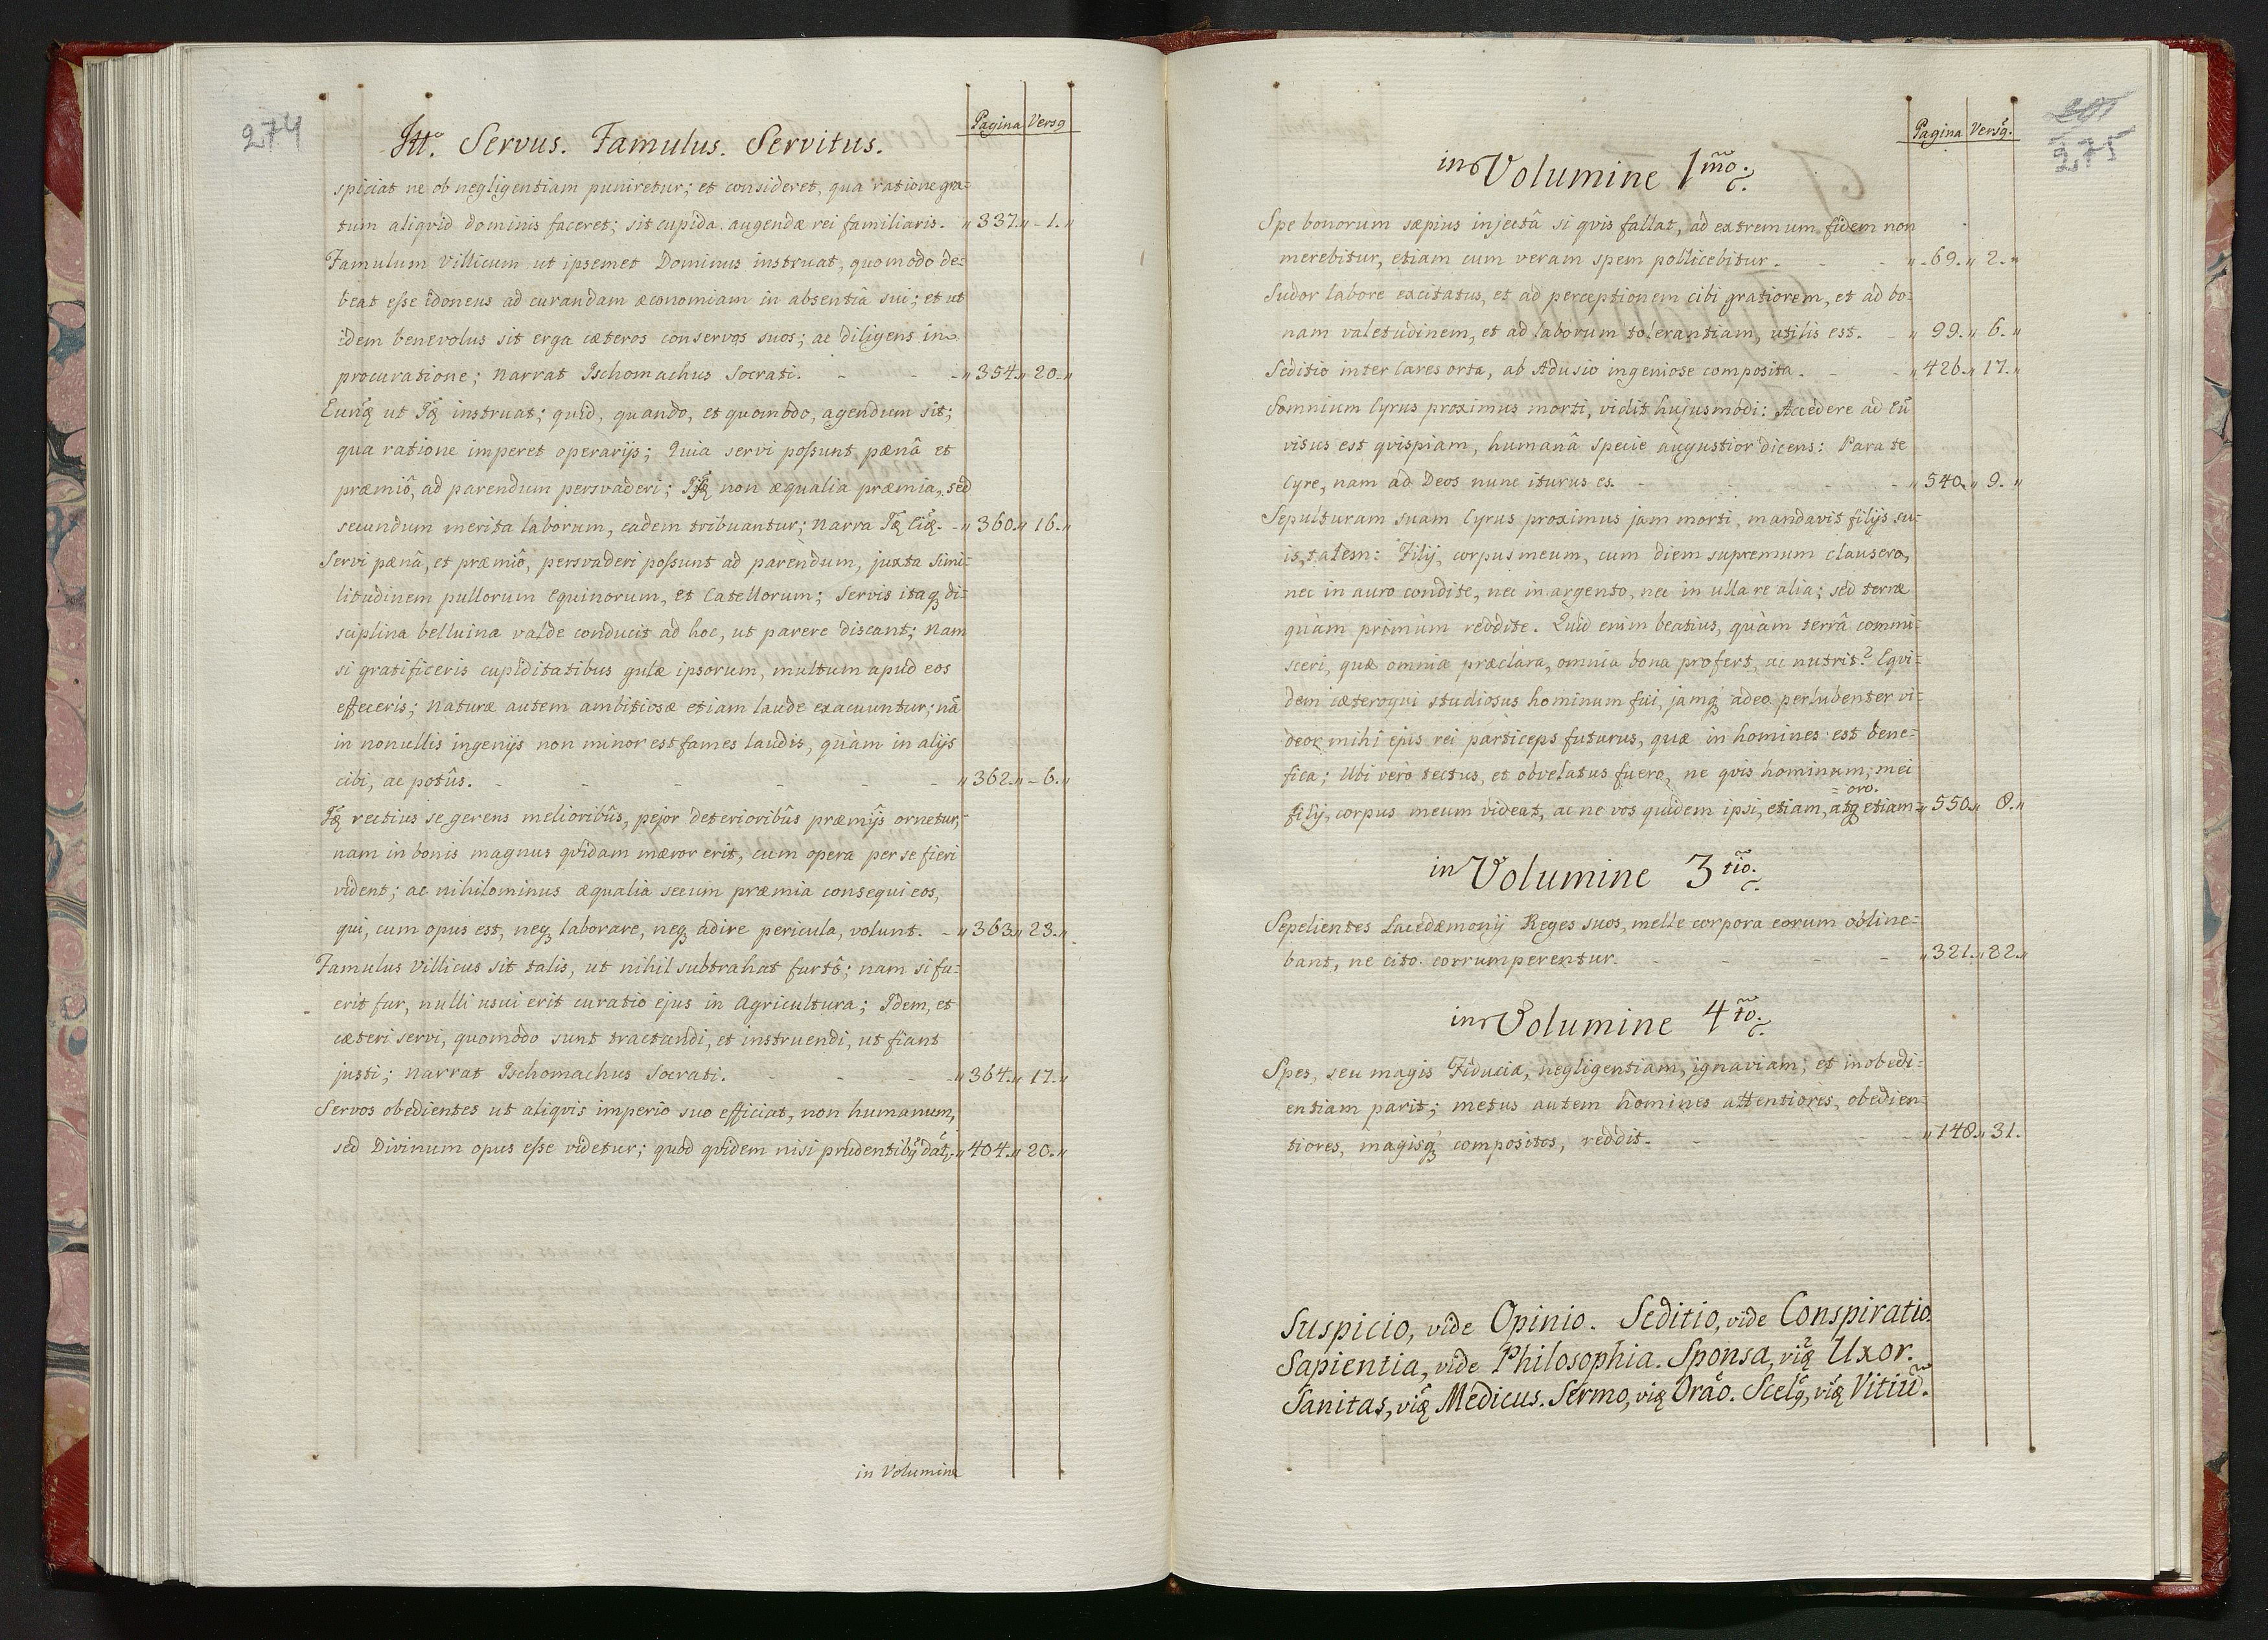 274
Itt. Servus. Famulus. Servitus.
Pagina Versq
spiciat ne ob negligentiam puniretur; et consideret, qua ratione gra=
tum aliqvid dominis faceret; sit cupida augendæ rei familiaris. „ 337. „ - 1. „
Famulum Villicum ut ipsemet Dominus instruat, quomodo de=
beat esse idoneus ad curandam œconomiam in absentia sui; et ut
idem benevolus sit erga cæteros conservos suos; ac diligens in
procuratione; narrat Ischomachus Socrati. - - - „ 354. „ 20. „
Eunq̃ ut Iq̃ instruat; quid, quando, et quomodo, agendum sit;
qua ratione imperet operarijs; Quia servi possunt pænâ et
præmiô, ad parendum persvaderi; non æqualia præmia, sed
secundum merita laborum, eadem tribuantur; Narra - „ 360. „ 16. „
Servi pænâ, et præmiô, persvaderi possunt ad parendum, juxta simi=
litudinem pullorum Equinorum, et Catellorum; Servis itaq di=
sciplina belluina valde conducit ad hoc, ut parere discant; Nam
si gratificeris cupiditatibus gulæ ipsorum, multum apud eos
effeceris; Naturæ autem ambitiosæ etiam laude exacuuntur; nã
in nonullis ingenijs non minor est fames laudis, quàm in alijs
cibi, ac potûs. - - - - - - „ 362. „ - 6. „
Iq̃ rectius se gerens melioribûs, pejor deterioribûs præmijs ornetur,
nam in bonis magnus qvidam mæror erit, cum opera per se fieri
vident; ac nihilominus æqualia secum præmia consequi eos,
qui, cum opus est, neq laborare, neq adire pericula, volunt. - „ 363. „ 23. „
Famulus Villicus sit talis, ut nihil subtrahat furtô; nam si fu=
erit fur, nulli usui erit curatio ejus in Agricultura; Idem, et
cæteri servi, quomodo sunt tractandi, et instruendi, ut fiant
justi; narrat Ischomachus Socrati. - - - - „ 364. „ 17. „
Servos obedientes ut aliqvis imperio suo efficiat, non humanum,
sed Divinum opus esse videtur; quod qvidem nisi prudentibq̃ datr̃. „ 404. „ 20. „
in Volumine
275
Pagina Versq.
in Volumine 1mo.
Spe bonorum sæpius injectâ si qvis fallat, ad extremum fidem non
merebitur, etiam cum veram spem pollicebitur. - - „ - 69. „ 2. „
Sudor labore excitatus, et ad perceptionem cibi gratiorem, et ad bo=
nam valetudinem, et ad laborum tolerantiam, utilis est. - „ 99. „ 6. „
Seditio inter Cares orta, ab Adusio ingeniose composita. - - „ 426. „ 17. „
Somnium Cyrus proximus morti, vidit hujusmodi: Accedere ad Eũ
visus est qvispiam, humanâ specie augustior dicens: Para te
Cyre, nam ad Deos nunc iturus es. - - - - „ 540. „ 9. „
Sepulturam suam Cyrus proximus jam morti, mandavit filijs su=
is, talem: Filij, corpus meum, cum diem supremum clausero,
nec in auro condite, nec in argento, nec in ulla re alia; sed terræ
quàm primùm reddite. Quid enim beatius, quàm terrâ commi=
sceri, quæ omnia præclara, omnia bona profert, ac nutrit? Eqvi=
dem cæteroqui studiosus hominum fui, jamq adeo perlubenter vi=
deor mihi ejus rei particeps futurus, quæ in homines est bene=
fica; Ubi verò tectus, et obvelatus fuero, ne qvis hominum, mei
filij, corpus meum videat, ac ne vos quidem ipsi, etiam, atq etiam „ 550. „ 8. „
= oro.
in Volumine 3tio.
Sepelientes Lacedæmonij Reges suos, melle corpora eorum obline=
bant, ne cito corrumperentur. - - - - „ 321. „ 32. „
in Volumine 4to.
Spes, seu magis Fiducia, negligentiam, ignaviam, et inobedi=
entiam parit; metus autem homines attentiores, obedien=
tiores, magisq compositos, reddit. - - - - „ 148. „ 31.
Suspicio, vide Opinio. Seditio, vide Conspiratio.
Sapientia, vide Philosophia. Sponsa, viq̃ Uxor.
Sanitas, viq̃ Medicus. Sermo, viq̃ Oraõ. Scelq̃, viq̃ Vitiũ.